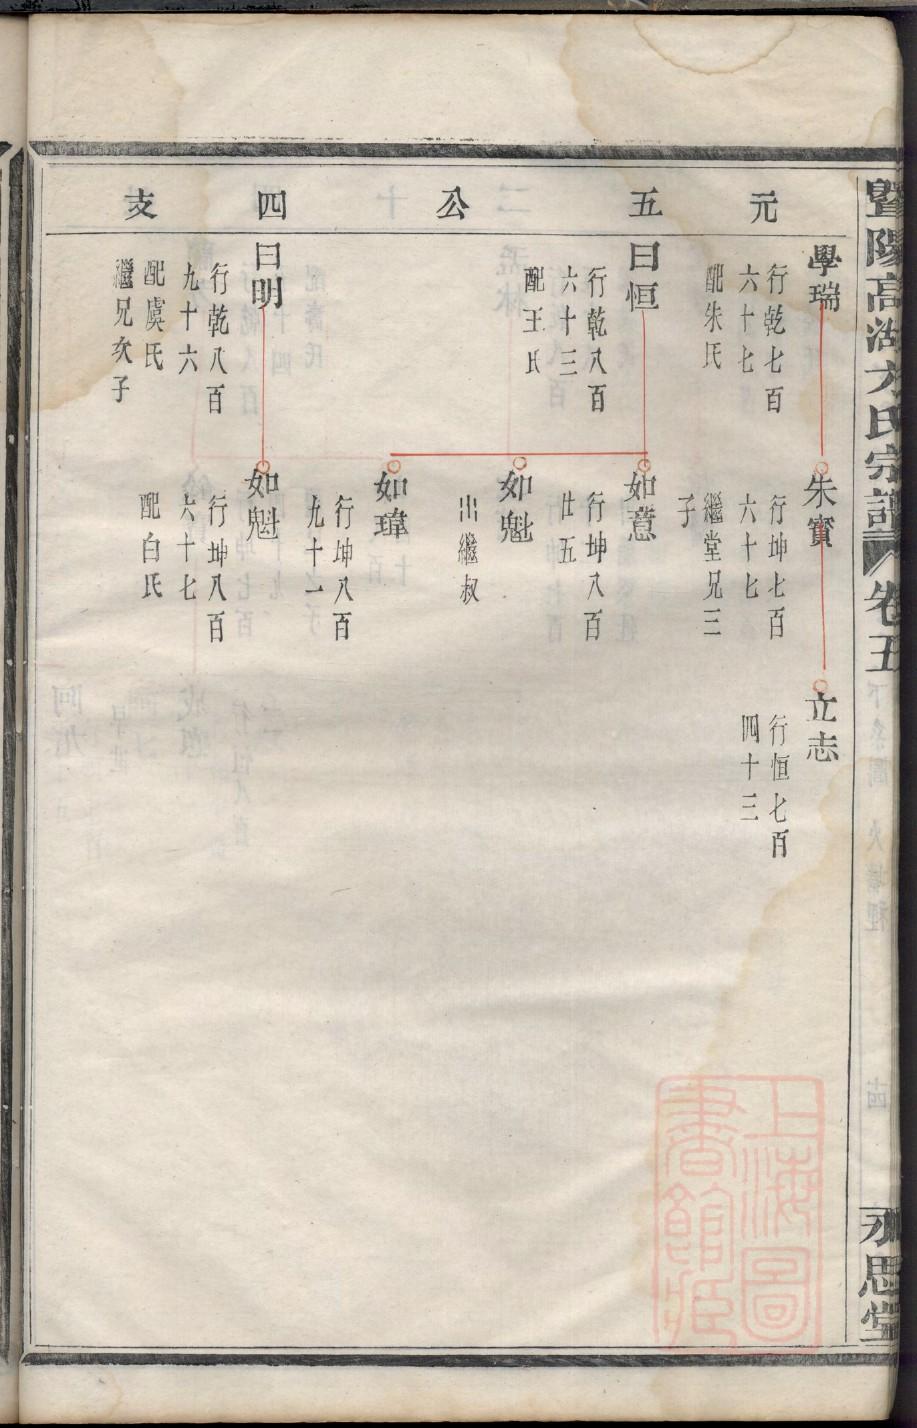 暨陽高湖方氏宗譜 卷五
永思堂
元五公四支
學瑞
行乾七百
六十七
配朱氏
朱寳
行坤七百
六十七
繼堂兄三
子
立志
行恒七百
四十三
曰恒
行乾八百
六十三
配王氏
如意
行坤八百
廿五
如魁
出繼叔
如瑋
行坤八百
九十一
曰明
行乾八百
九十六
配虞氏
繼兄次子
如魁
行坤八百
六十七
配白氏
上海圖
書館藏